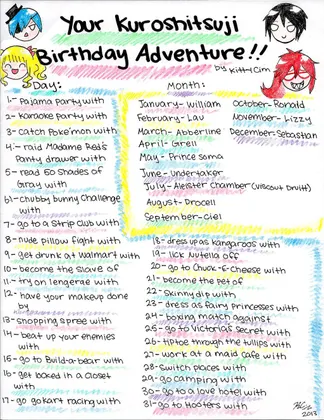 Your Kuroshitsuji
Birthday Adventure!!
by KittyCim
Day:
1:- Pajama party with
2:- Karaoke party with
3:- catch Poke'mon with
4:- raid Madame Red's
Panty drawer with
5:- read 50 Shades of
Gray with
6:- chubby bunny Challenge
with
7:- go to a Strip club with
8:- nude pillow fight with
9:- get drunk at Walmart with
10:- become the slave of
11:- try on lengerae with
12:- have your makeup done
by
13:- Shopping spree with
14:- beat up your enemies
with
15:- go to Build-a-bear with
16:- get locked in a Closet
with
17:- go go kart racing with
Month:
January- William
February- Lau
March- Abberline
April- Grell
May- Prince Soma
June- Undertaker
July- Aleister Chamber (Viscout Druitt)
August- Drocell
September- Ciel
October- Ronald
November- Lizzy
December- Sebastian
18:- dress up as kangaroos with
19:- lick Nutella off
20:- go to Chuck-E-Cheese with
21:- become the pet of
22:- Skinny dip with
23:- dress as fairy princesses with
24:- boxing match against
25:- go to Victoria's secret with
26:- tiptoe through the tulips with
27:- work at a maid cafe with
28:- Switch places with
29:- go camping with
30:- go to a love hotel with
31:- go to Hooters with